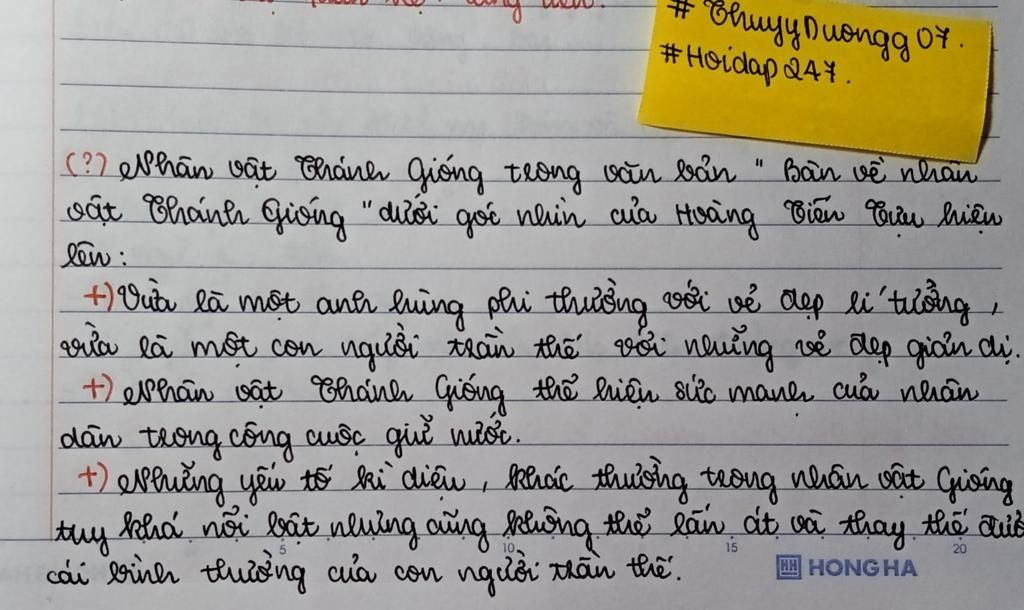 # ThuyyDuongg07.
#Hoidap247.
(?) Nhân vật Thánh Gióng trong văn bản " Bàn về nhân
vật Thánh Gióng "dưới goc nhìn của Hoàng Tiến Tựu hiện
lên:
+) Vừa là một anh hùng phi thường với vẻ đẹp lí tưởng,
vừa là một con người trần thế với những vẻ đẹp giản dị.
+) Nhân vật Thánh Gióng thể hiện sức manh của nhân
dân trong công cuộc giữ nước.
+) Những yếu tố kì diệu, khác thường trong nhân vật Gióng
tuy khá nổi bật nhưng cũng không thể lấn át và thay thế
cái bình thường của con người trần thế.
5 10 15 20
HH HONG HA